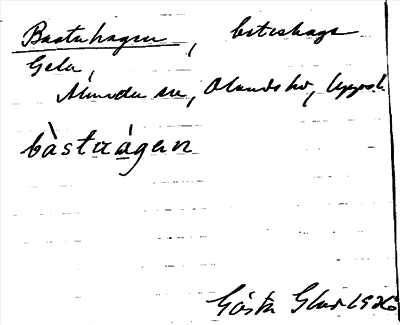 Bastuhagen, beteshage
Gela,
Almunda sn, Olands hd, Uppsl.
bàstuágan
Gösta 1926